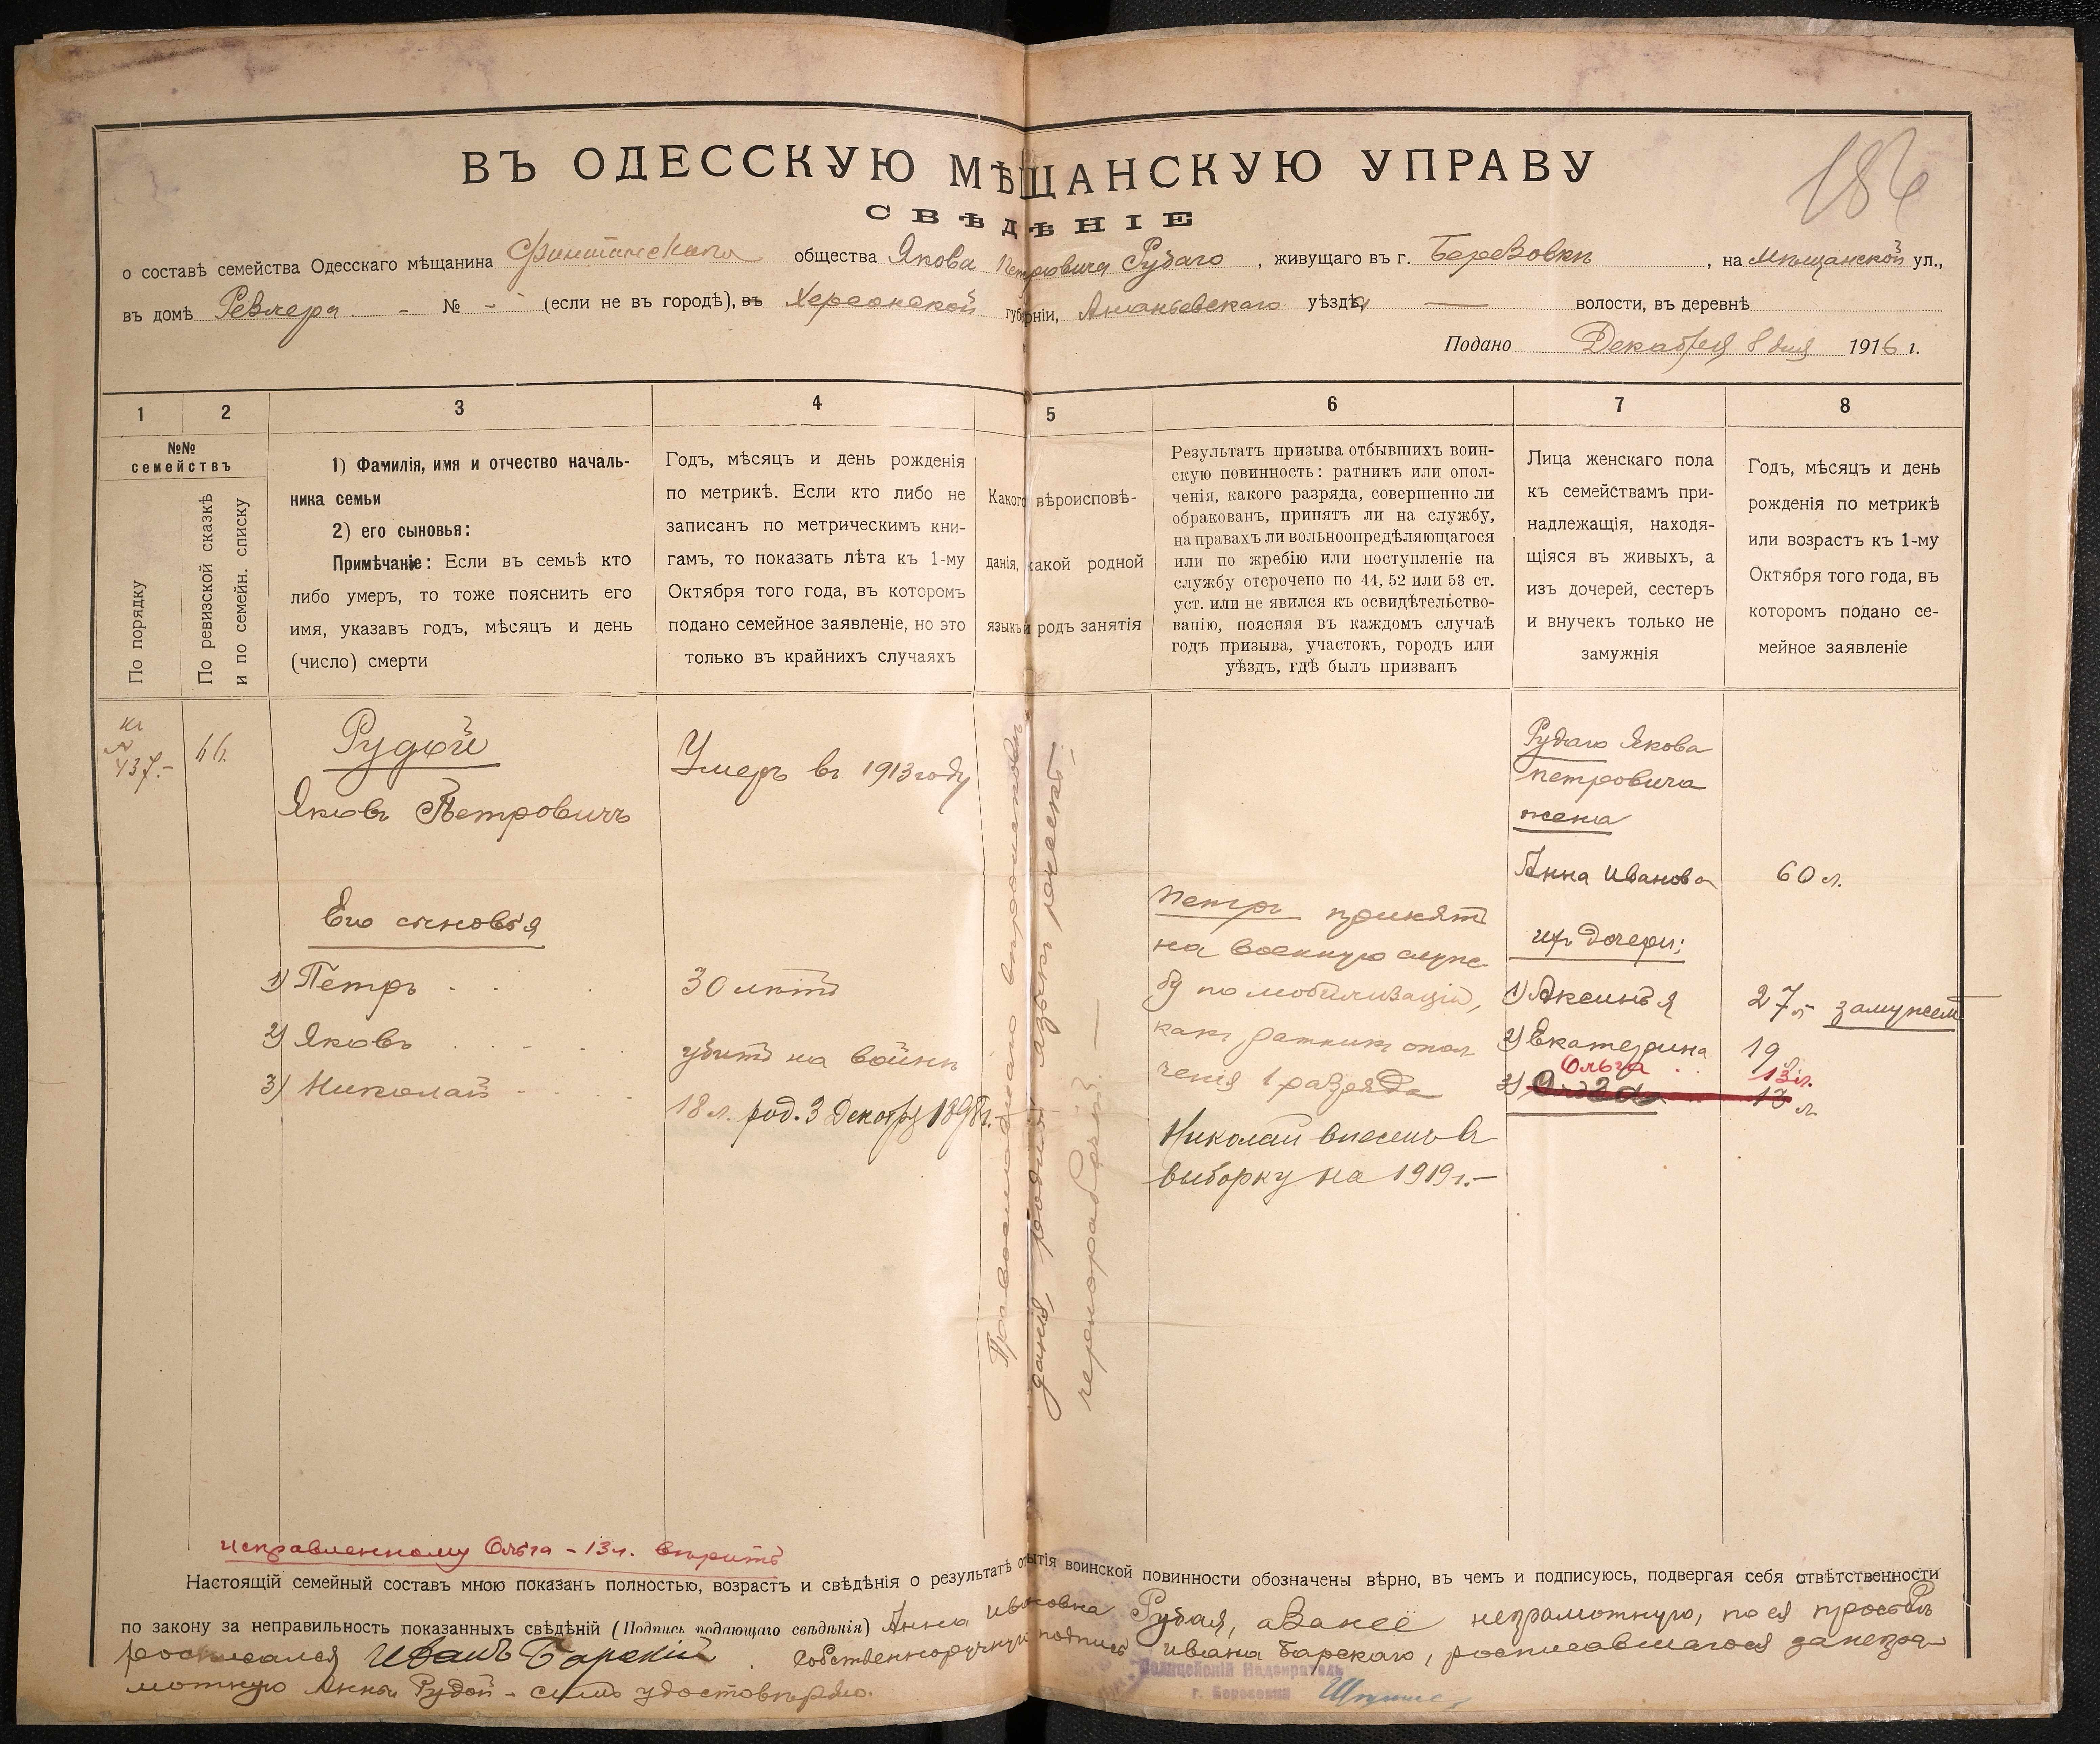 186
ВЪ ОДЕССКУЮ МѢЩАНСКУЮ УПРАВУ
СВѢДѢНІЕ
о составѣ семейства Одесскаго мѣщанина Фонтанскаго общества Якова Петровича Рудаго, живущаго въ г. Березовки, на Мѣщанской ул.,
въ домѣ - № - (если не въ городѣ), въ Херсонской губерніи, Ананьевскаго уѣзда, — волости, въ деревнѣ
Подано Декабря 8 дня 1916 г.
1 2 3 4 5 6 7 8
№№
семействъ
По порядку
По ревизской сказкѣ
и по семейн. списку
1) Фамилія, имя и отчество началь-
ника семьи
2) его сыновья:
Примѣчаніе: Если въ семьѣ кто
либо умеръ, то тоже пояснить его
имя, указавъ годъ, мѣсяцъ и день
(число) смерти
Годъ, мѣсяцъ и день рожденія
по метрикѣ. Если кто либо не
записанъ по метрическимъ кни-
гамъ, то показать лѣта къ 1-му
Октября того года, въ которомъ
подано семейное заявленіе, но это
только въ крайнихъ случаяхъ
Какого вѣроисповѣ-
данія, какой родной
языкъ и родъ занятія
Результатъ призыва отбывшихъ воин-
скую повинность: ратникъ или опол-
ченія, какого разряда, совершенно ли
обракованъ, принятъ ли на службу,
на правахъ ли вольноопредѣляющагося
или по жребію или поступленіе на
службу отсрочено по 44, 52 или 53 ст.
уст. или не явился къ освидѣтельство-
ванію, поясняя въ каждомъ случаѣ
годъ призыва, участокъ, городъ или
уѣздъ, гдѣ былъ призванъ
Лица женскаго пола
къ семействамъ при-
надлежащія, находя-
щіяся въ живыхъ, а
изъ дочерей, сестеръ
и внучекъ только не
замужнія
Годъ, мѣсяцъ и день
рожденія по метрикѣ
или возрастъ къ 1-му
Октября того года, въ
котомъ подано се-
мейное заявленіе
кг
№
437.-
Рудой
Яковъ Петровичъ
Умеръ въ 1913 году
Его сыновья
1) Петръ
30 лѣтъ
2) Яковъ
убитъ на войнѣ
3) Николай
18 л. род. 3 Декабря 1898 г.
Православнаго вѣроисповѣ
данія, родной языкъ русскій
чернорабочій. —
Петръ принятъ
на военную служ
бу по мобилизаціи,
какъ ратникъ опол
ченія 1 разряда
Николай внесенъ въ
выборку на 1919 г.-
Рудаго Якова
Петровича
жена
Анна Иванова 60 л.
ихъ дочери:
1) Аксинья 27 л замужем
2) Екатерина 19 л
Ольга 13 л.
3) 13 л.
Исправленному Ольга - 13 л. вѣрить
Настоящій семейный составъ мною показанъ полностью, возрастъ и свѣдѣнія о результатѣ отбытія воинской повинности обозначены вѣрно, въ чемъ и подписуюсь, подвергая себя отвѣтственности
по закону за неправильность показанныхъ свѣдѣній (Подпись подающаго свѣдѣнія) Анна Ивановна Рудая, а за нее неграмотную, по ея просьбѣ
росписался Иванъ Барскій. Собственноручную подпись Ивана Барскаго, росписавшагося за негра
мотную Анны Рудой - симъ удостовѣряю.
Полицейскій Надзиратель
г. Березовки